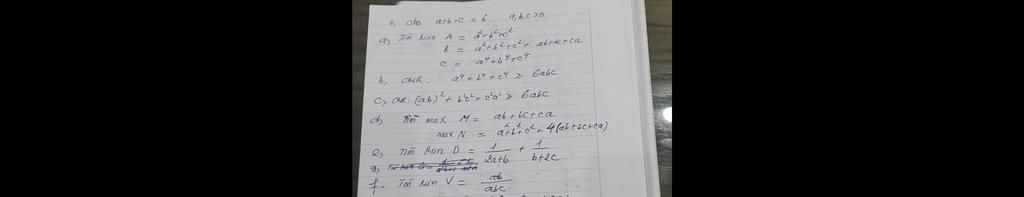 1, Cho a+b+c = 6 a,b,c >0
a) Tìm Min A = a²+b²+c²
B = a²+b²+c²+ ab+bc+ca
C = a⁴+b⁴+c⁴
b, CMR: a⁴+b⁴+c⁴ ≥ 6abc
c, CMR: (ab)²+ b²c²+ c²a² ≥ 6abc
d, Tìm max M = ab+bc+ca
max N = a²+b²+c²+4(ab+bc+ca)
e, Tìm Min D = 1/(2a+b) + 1/(b+2c)
g)
f. Tìm Min V = ab/abc